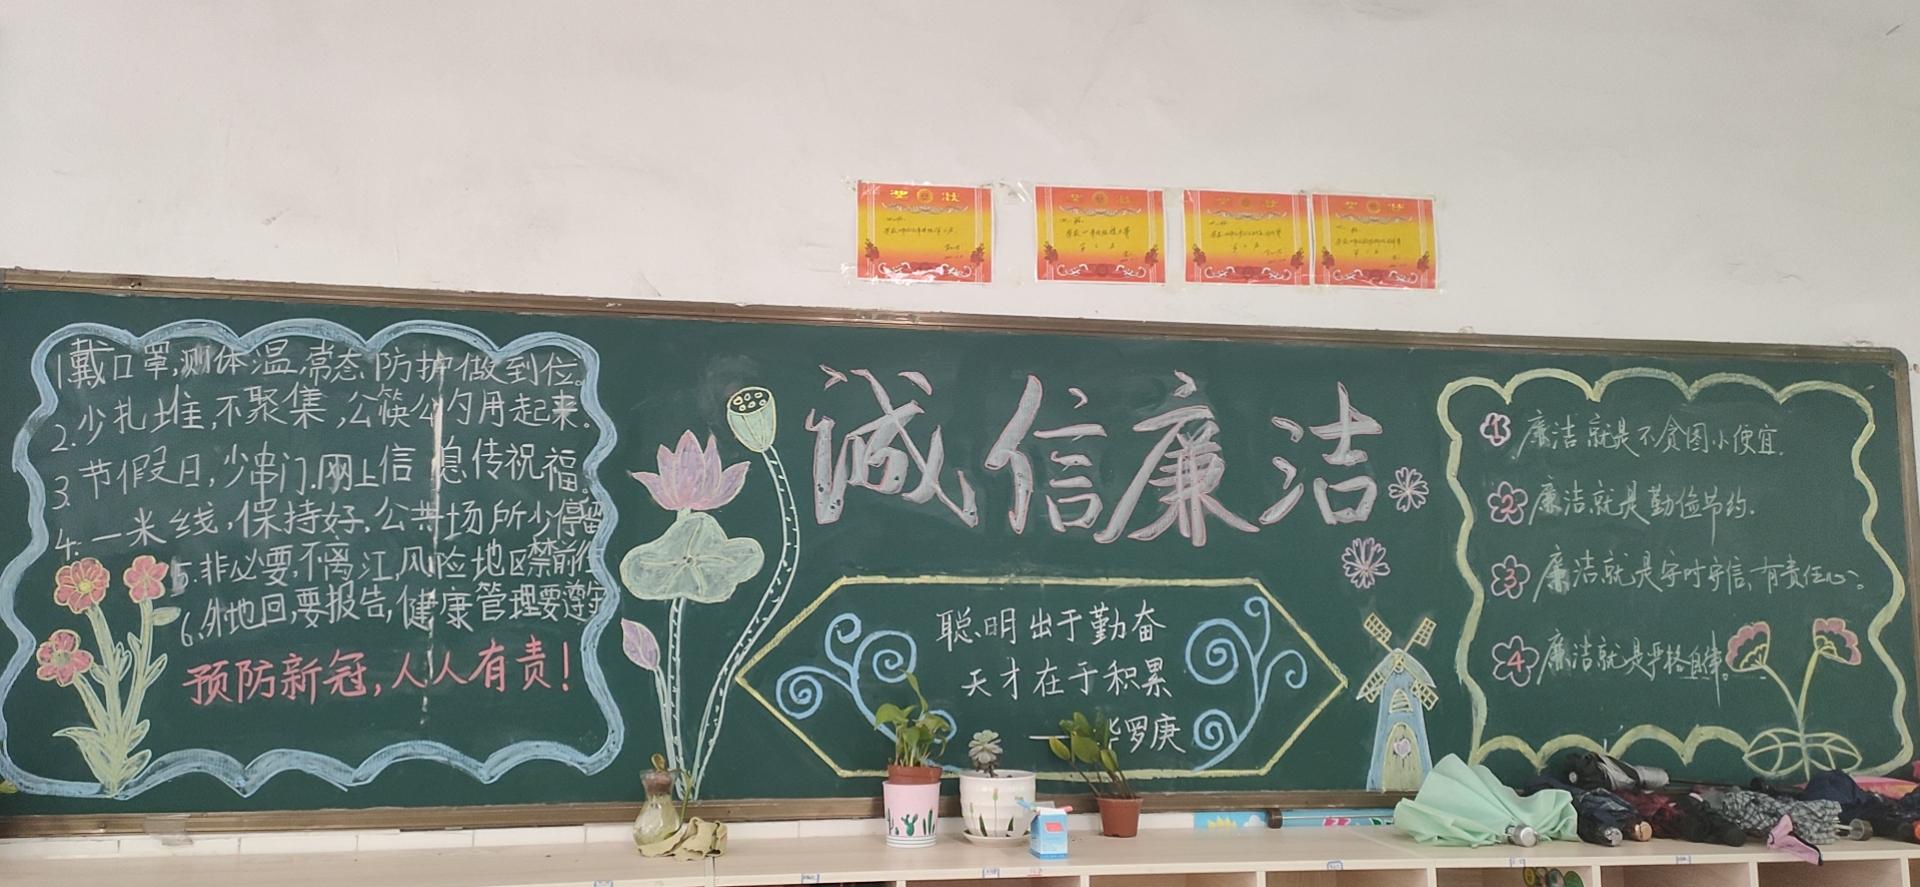 奖状
奖状
奖状
奖状
1.戴口罩,测体温,常态防护做到位。
2.少扎堆,不聚集,公筷公勺用起来。
3.节假日,少串门,网上信息传祝福。
4.一米线,保持好,公共场所少停留
5.非必要,不离江,风险地区禁前往
6.外地回,要报告,健康管理要遵守
预防新冠,人人有责!
诚信廉洁
聪明出于勤奋
天才在于积累
——华罗庚
1 廉洁就是不贪图小便宜.
2 廉洁就是勤俭节约.
3 廉洁就是守时守信,有责任心。
4 廉洁就是严格自律。